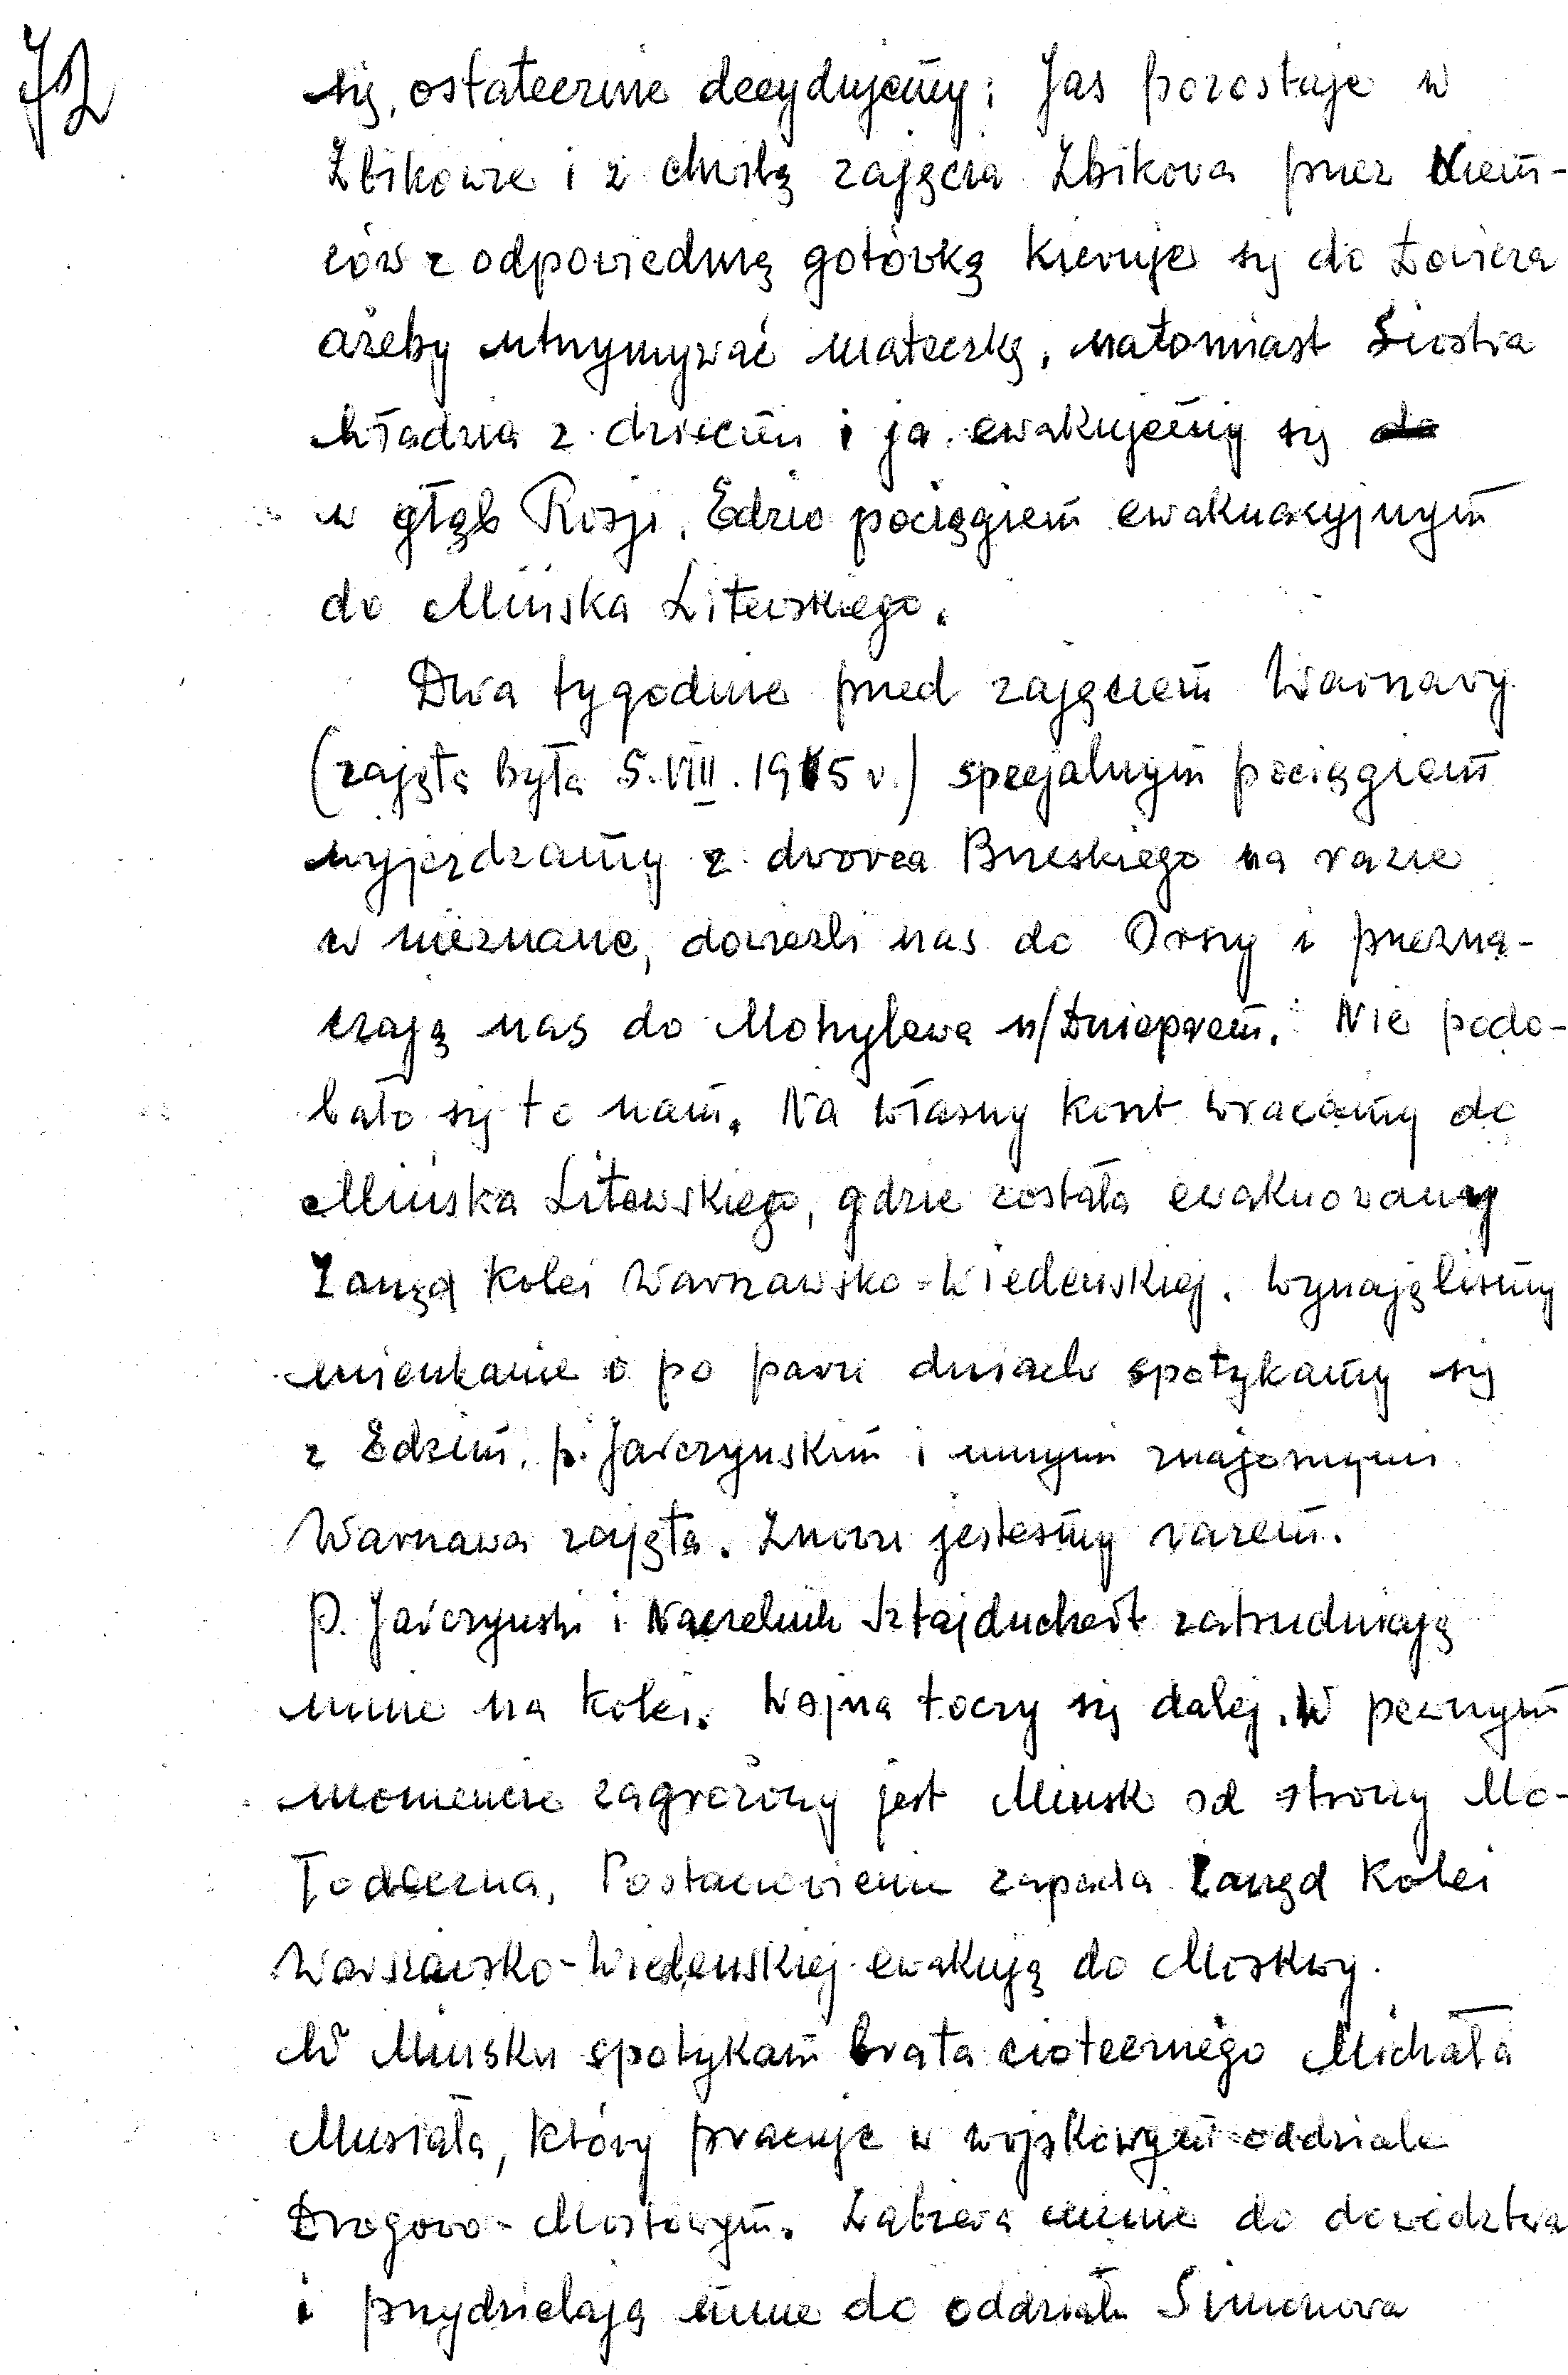 72
się, ostatecznie decydujemy: Jaś pozostaje w
Żbikowie i z chwilą zajęcia Żbikowa przez Niem-
ców z odpowiednią gotówką kieruje się do Łowicza
ażeby utrzymywać mateczkę, natomiast Siostra
Władzia z dziećmi i ja ewakujemy się do
w głąb Rosji. Edzio pociągiem ewakuacyjnym
do Mińska Litewskiego.
Dwa tygodnie przed zajęciem Warszawy
(zajęta była 5.VIII.1915 r.) specjalnym pociągiem
wyjeżdżamy z dworca Brzeskiego na razie
w nieznane, dowieźli nas do Orszy i przezna-
czają nas do Mohylewa n/Dnieprem. Nie podo-
bało się to nam. Na własny koszt wracamy do
Mińska Litewskiego, gdzie została ewakuowany
Zarząd Kolei Warszawsko-Wiedeńskiej. Wynajęliśmy
mieszkanie i po paru dniach spotykamy się
z Edziem, p. Jarczyńskim i innymi znajomymi
Warszawa zajęta. Znowu jesteśmy razem.
P. Jarczyński i Naczelnik Sztajduchert zatrudniają
mnie na kolei. Wojna toczy się dalej. W pewnym
momencie zagrożony jest Mińsk od strony Mo-
łodeczna. Postanowienie zapada Zarząd Kolei
Warszawsko-Wiedeńskiej ewakują do Moskwy.
W Mińsku spotykam brata ciotecznego Michała
Musiała, który pracuje w wojskowym oddziale
Drogowo-Mostowym. Zabiera mnie do dowództwa
i przydzielają mnie do oddziału Simonowa